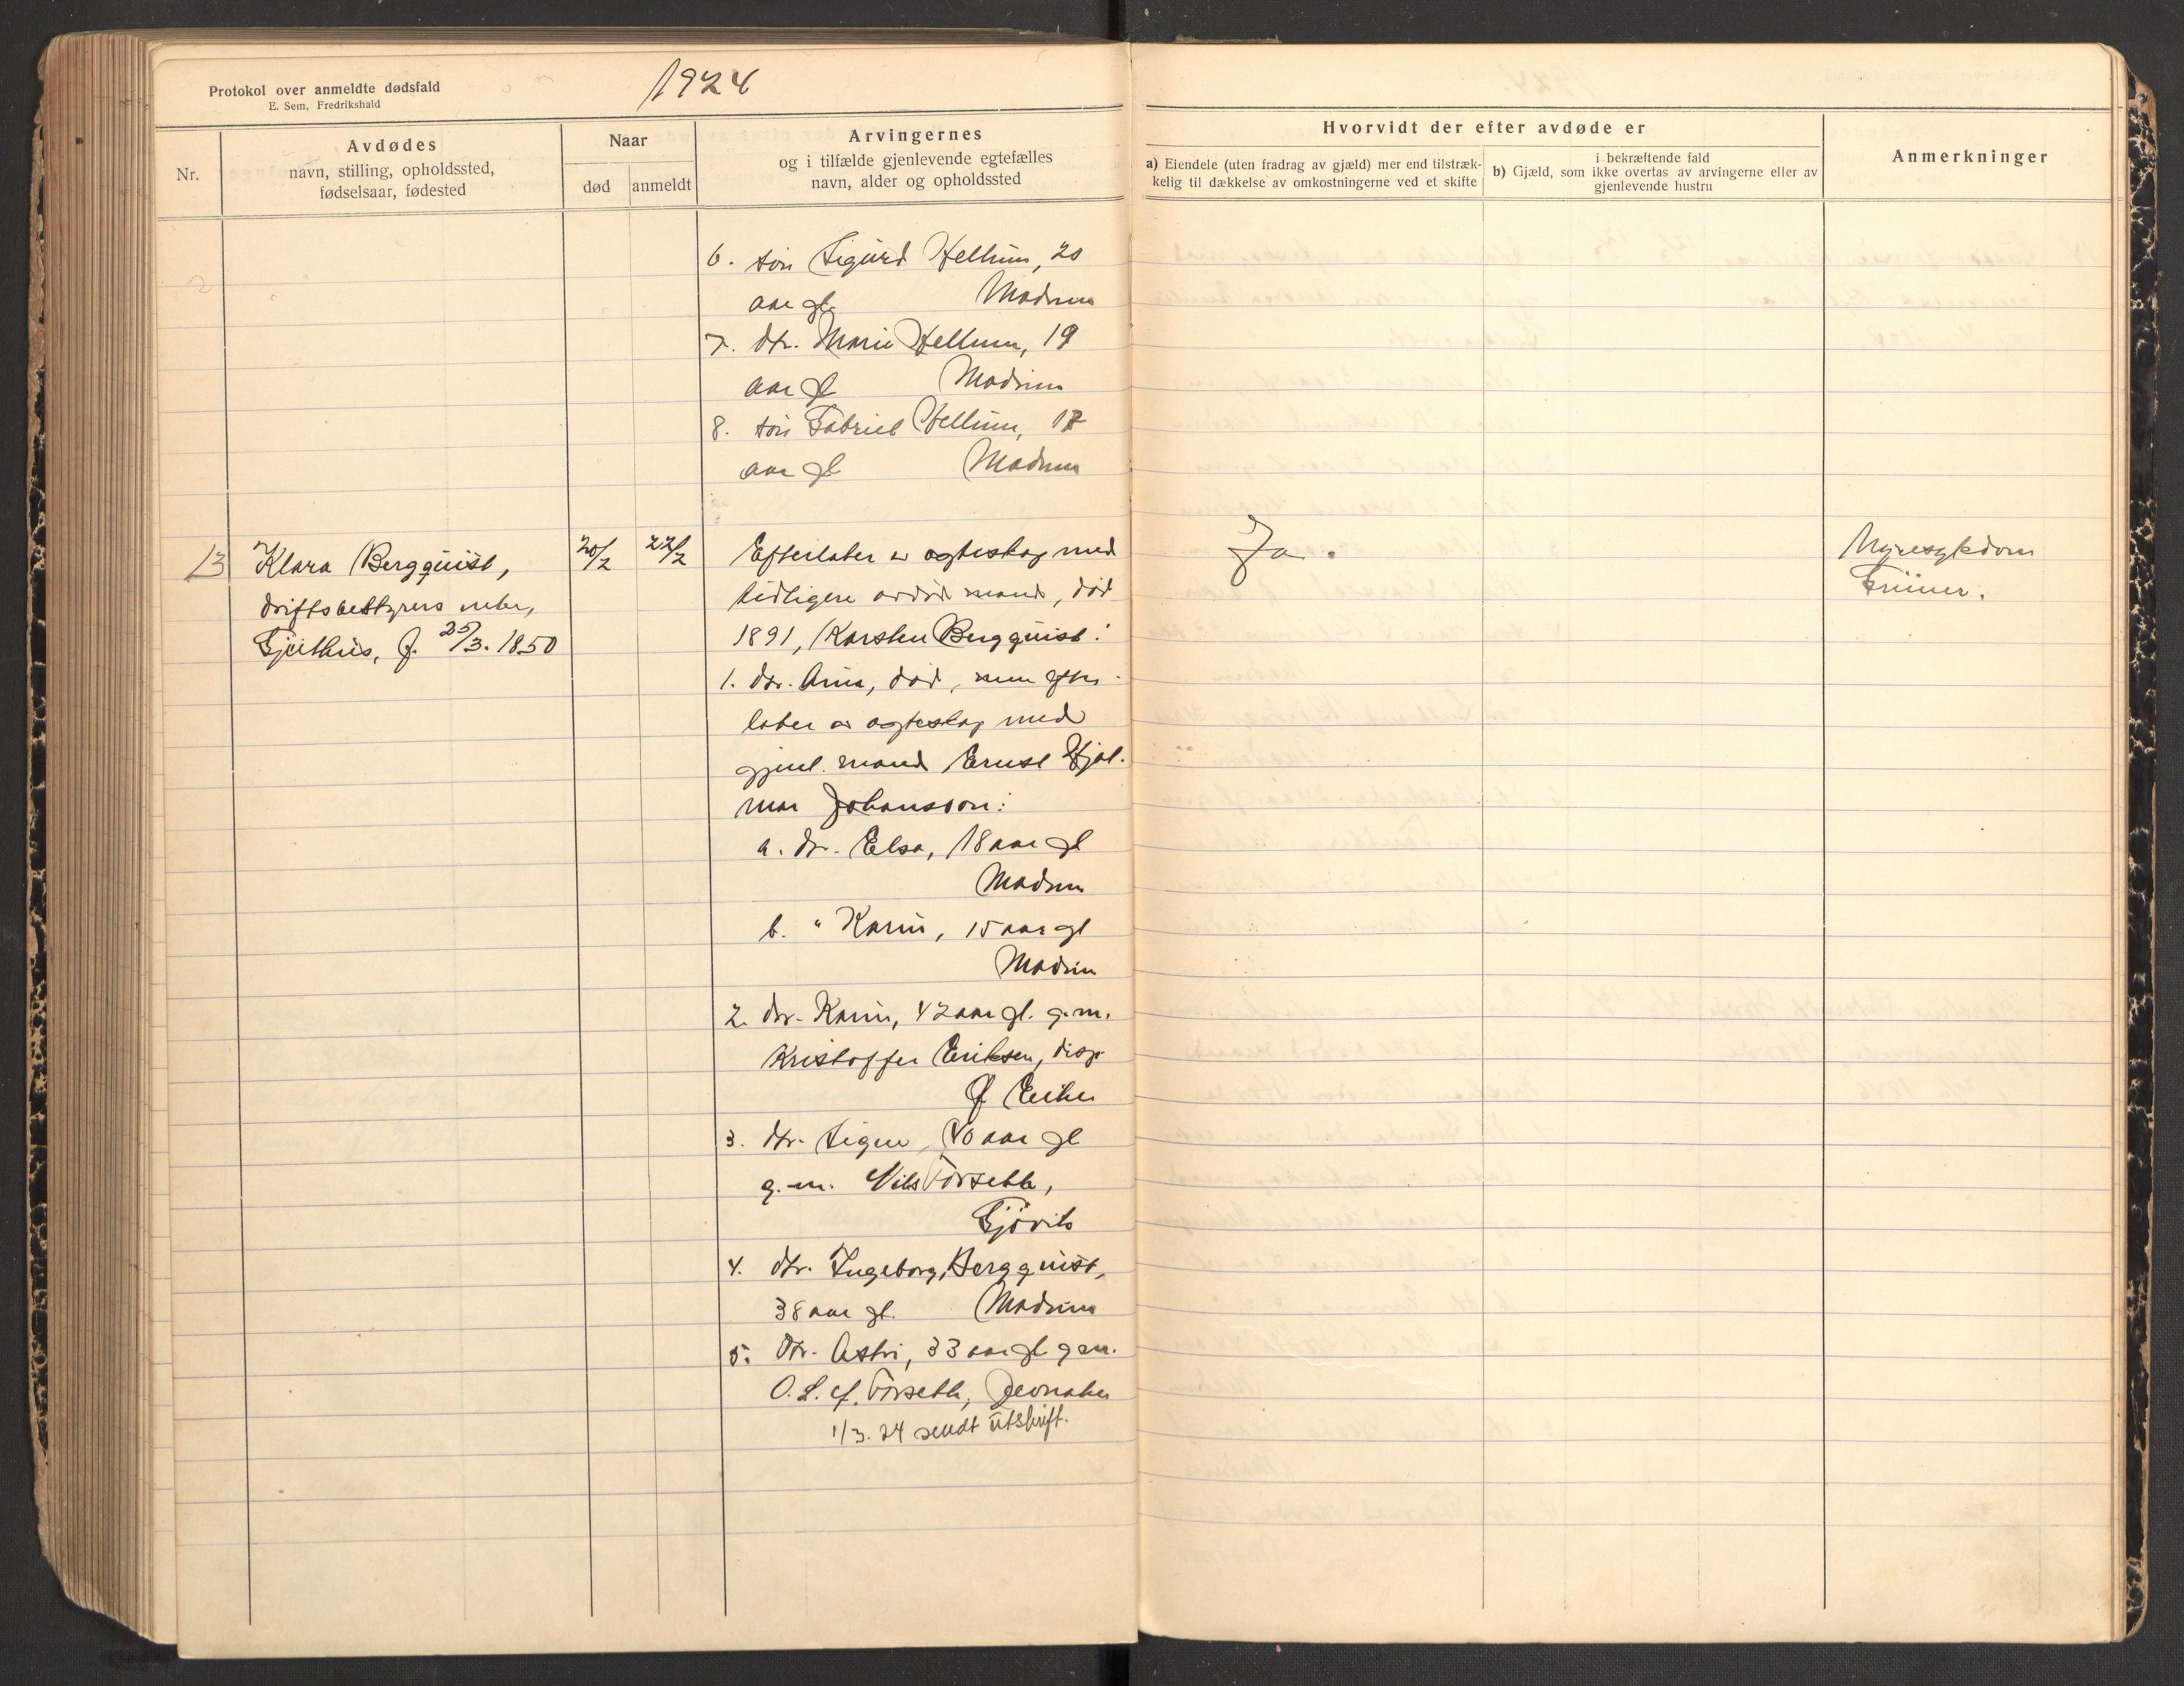 Protokol over anmeldte dødsfald
E. Sem, Fredrikshald
1924
Nr.
Avdødes
navn, stilling, opholdssted,
fødselsaar, fødested
Naar
død
anmeldt
Arvingernes
og i tilfælde gjenlevende egtefælles
navn, alder og opholdssted
Hvorvidt der efter avdøde er
a) Eiendele (uten fradrag av gjæld) mer end tilstræk-
kelig til dækkelse av omkostningerne ved et skifte
i bekræftende fald
b) Gjæld, som ikke overtas av arvingerne eller av
gjenlevende hustru
Anmerkninger
6. søn Sigurd Hellum, 20
aar gl. Modum
7. dtr. Marie Hellum, 19
aar gl Modum
8. søn Gabriel Hellum, 17
aar gl Modum
13
Klara Bergquist,
driftsbestyrers enke,
Gjeithus, f. 25/3. 1850
20/2
22/2
Efterlater av egteskap med
tidligere avdød mand, død
1891, Karsten Bergquist:
1. dtr. Anna, død, men efter-
later av egteskap med
gjenl. mand Ernst Hjal-
mar Johansson:
a. dr. Elsa, 18 aar gl
Modum
b. " Karin, 15 aar gl
Modum
2. dtr. Karin, 42 aar gl. g.m.
Kristoffer Eriksen, disp.
Ø Eiker
3. dtr. Signe, 40 aar gl
g.m. Nils Forseth,
Gjøvik
4. dtr. Ingeborg Bergquist,
38 aar gl. Modum
5. dtr. Astri, 33 aar gl g.m.
O. L. Forseth, Jevnaker
1/3. 24 sendt utskrift.
Ja.
Nyresykdom
Grüner.